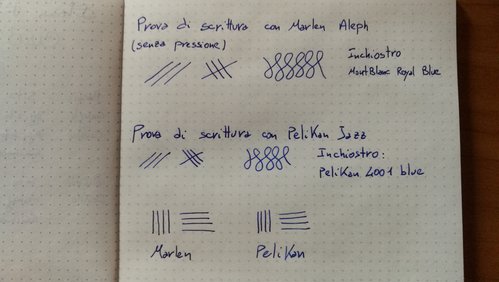 Prova di scrittura con Marlen Aleph
(senza pressione)
Inchiostro
MontBlanc Royal Blue
Prova di scrittura con Pelikan Jazz
Inchiostro:
Pelikan 4001 blue
Marlen
Pelikan